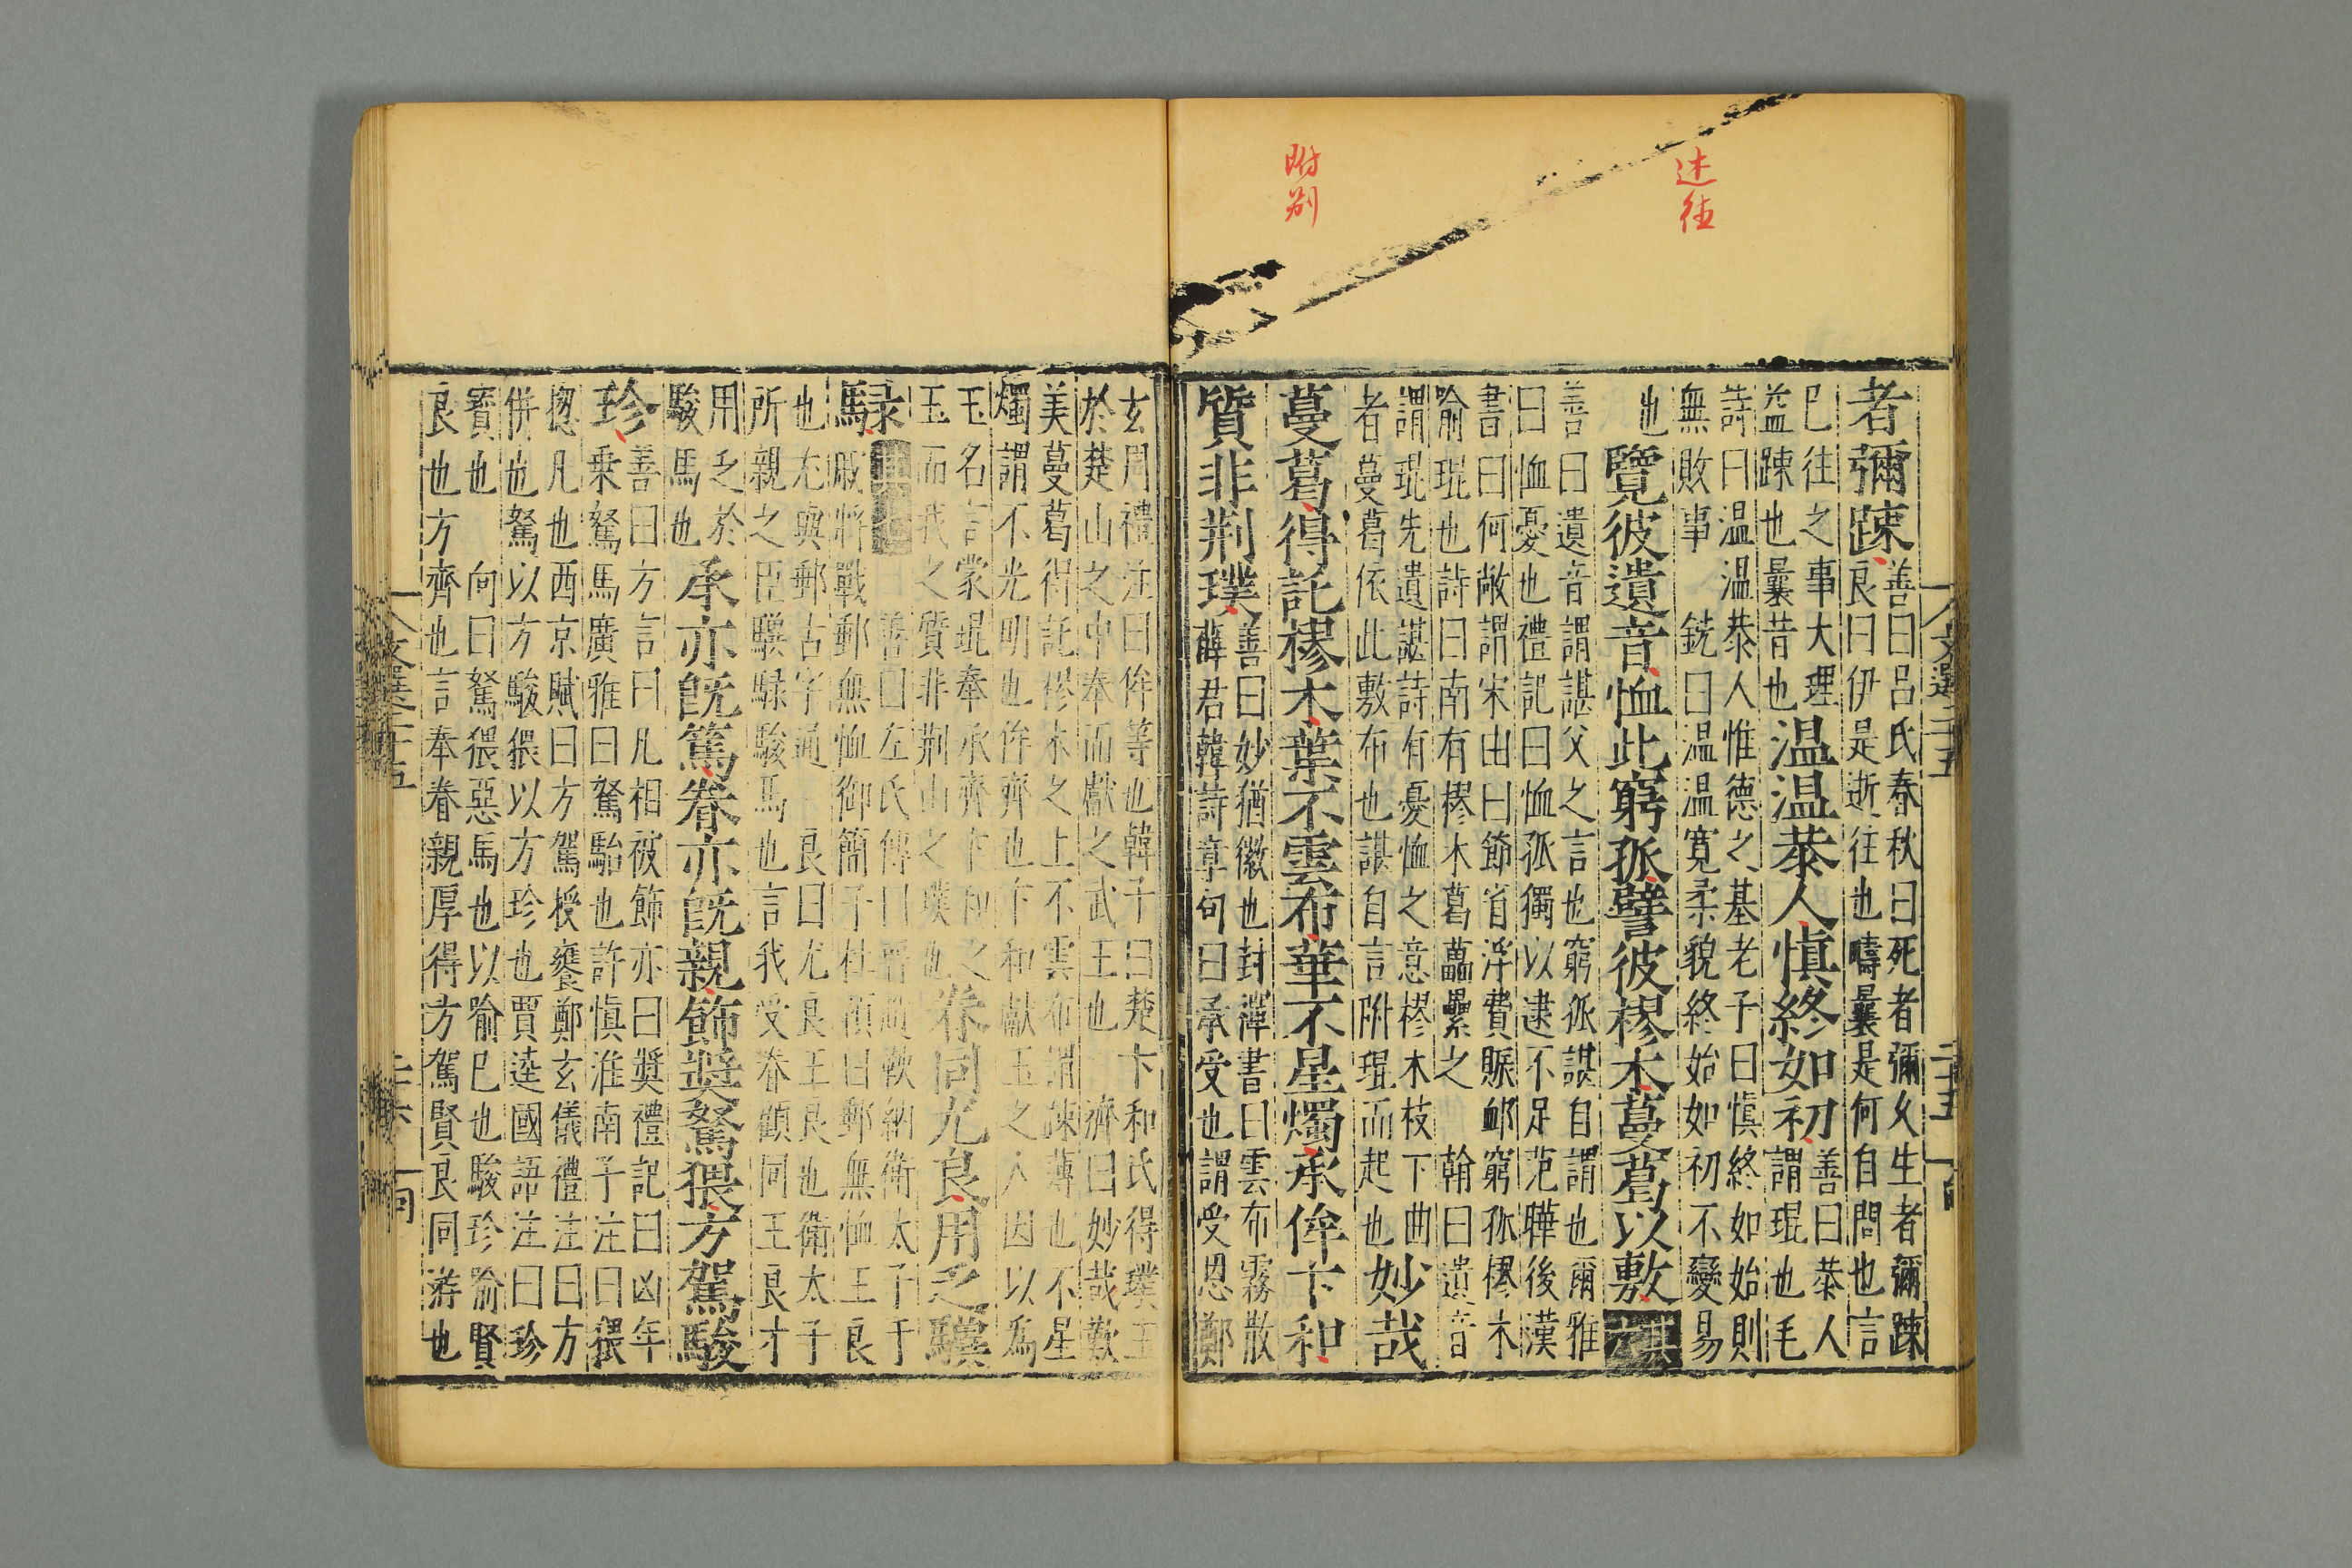 述往
附別
者彌踈善曰吕氏春秋曰死者彌久生者彌踈
良曰伊是逝往也疇曩是何自問也言
已往之事大理
益踈也曩昔也温温恭人慎終如初善曰恭人
謂琨也毛
詩曰温温恭人惟德之基老子曰慎終如始則
無敗事 銑曰温温寬柔貌終始如初不變易
也覽彼遺音恤此窮孤譬彼樛木蔓葛以敷其六
善曰遺音謂諶父之言也窮孤諶自謂也爾雅
曰恤憂也禮記曰恤孤獨以逮不足范曄後漢
書曰何敞謂宋由曰節省浮費賑卹窮孤樛木
喻琨也詩曰南有樛木葛藟纍之 翰曰遺音
謂琨先遺諶詩有憂恤之意樛木枝下曲
者蔓葛依此敷布也諶自言附琨而起也妙哉
蔓葛得託樛木葉不雲布華不星燭承侔卞和
質非荆璞善曰妙猶徽也封禪書曰雲布霧散
薛君韓詩章句曰承受也謂受恩鄭
玄周禮注曰侔等也韓子曰楚卞和氏得璞玉
於楚山之中奉而獻之武王也 濟曰妙哉歎
美蔓葛得託樛木之上不雲布謂踈薄也不星
燭謂不光明也侔齊也卞和獻玉之人因以爲
玉名言蒙琨奉承齊卞和之
玉而我之質非荆山之璞也眷同尤良用乏驥
騄其七善曰左氏傳曰晉趙鞅納衛太子于
戚將戰郵無恤御簡子杜預曰郵無恤王良
也尤與郵古字通 良曰尤良王良也衛太子
所親之臣驥騄駿馬也言我受眷顧同王良才
用乏於
駿馬也承亦既篤眷亦既親飾獎駑猥方駕駿
珍善曰方言曰凡相被飾亦曰獎禮記曰凶年
乗駑馬廣雅曰駑駘也許慎淮南子注曰猥
揔凡也西京賦曰方駕授饔鄭玄儀禮注曰方
併也駑以方駿猥以方珍也賈逵國語注曰珍
寳也 向曰駑猥惡馬也以喻已也駿珍喻賢
良也方齊也言奉眷親厚得方駕賢良同游也